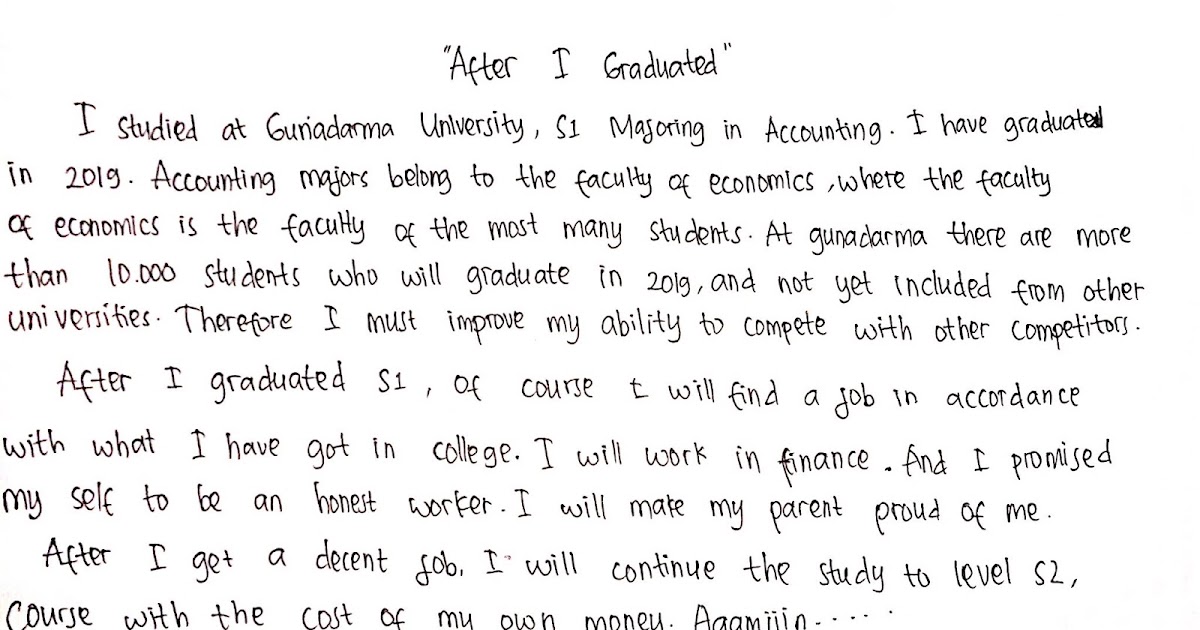 "After I Graduated"
I studied at Gunadarma University, S1 Majoring in Accounting. I have graduated
in 2019. Accounting majors belong to the faculty of economics, where the faculty
of economics is the faculty of the most many students. At gunadarma there are more
than 10.000 students who will graduate in 2019, and not yet included from other
universities. Therefore I must improve my ability to compete with other competitors.
After I graduated S1, of course I will find a job in accordance
with what I have got in college. I will work in finance. And I promised
my self to be an honest worker. I will make my parent proud of me.
After I get a decent job, I will continue the study to level S2,
Course with the cost of my own money. Aaamiiin.....